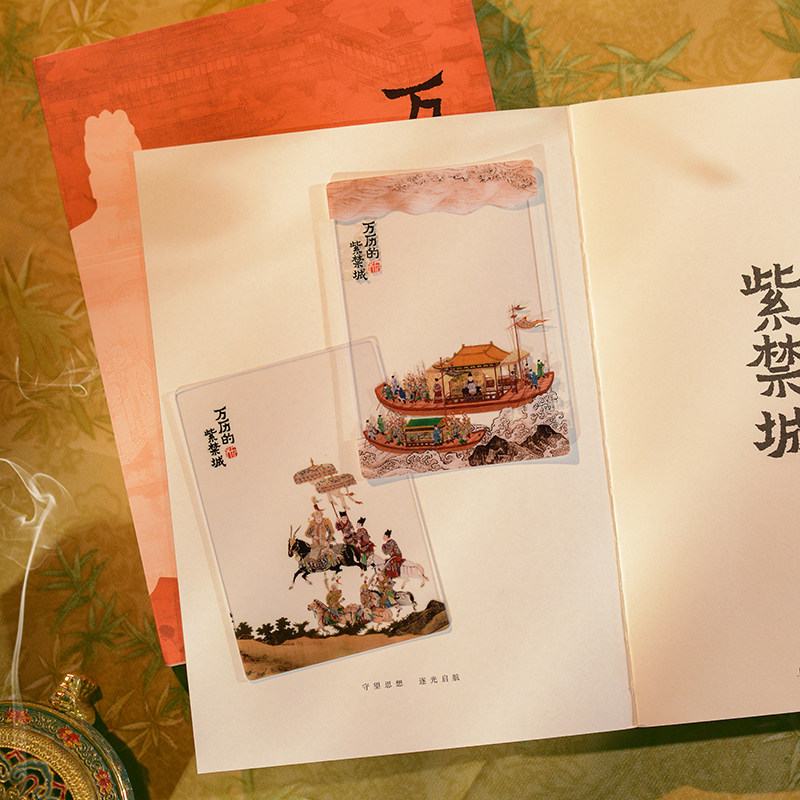 万
万历的
紫禁城
万历的
紫禁城
守望思想 逐光启航
紫禁城